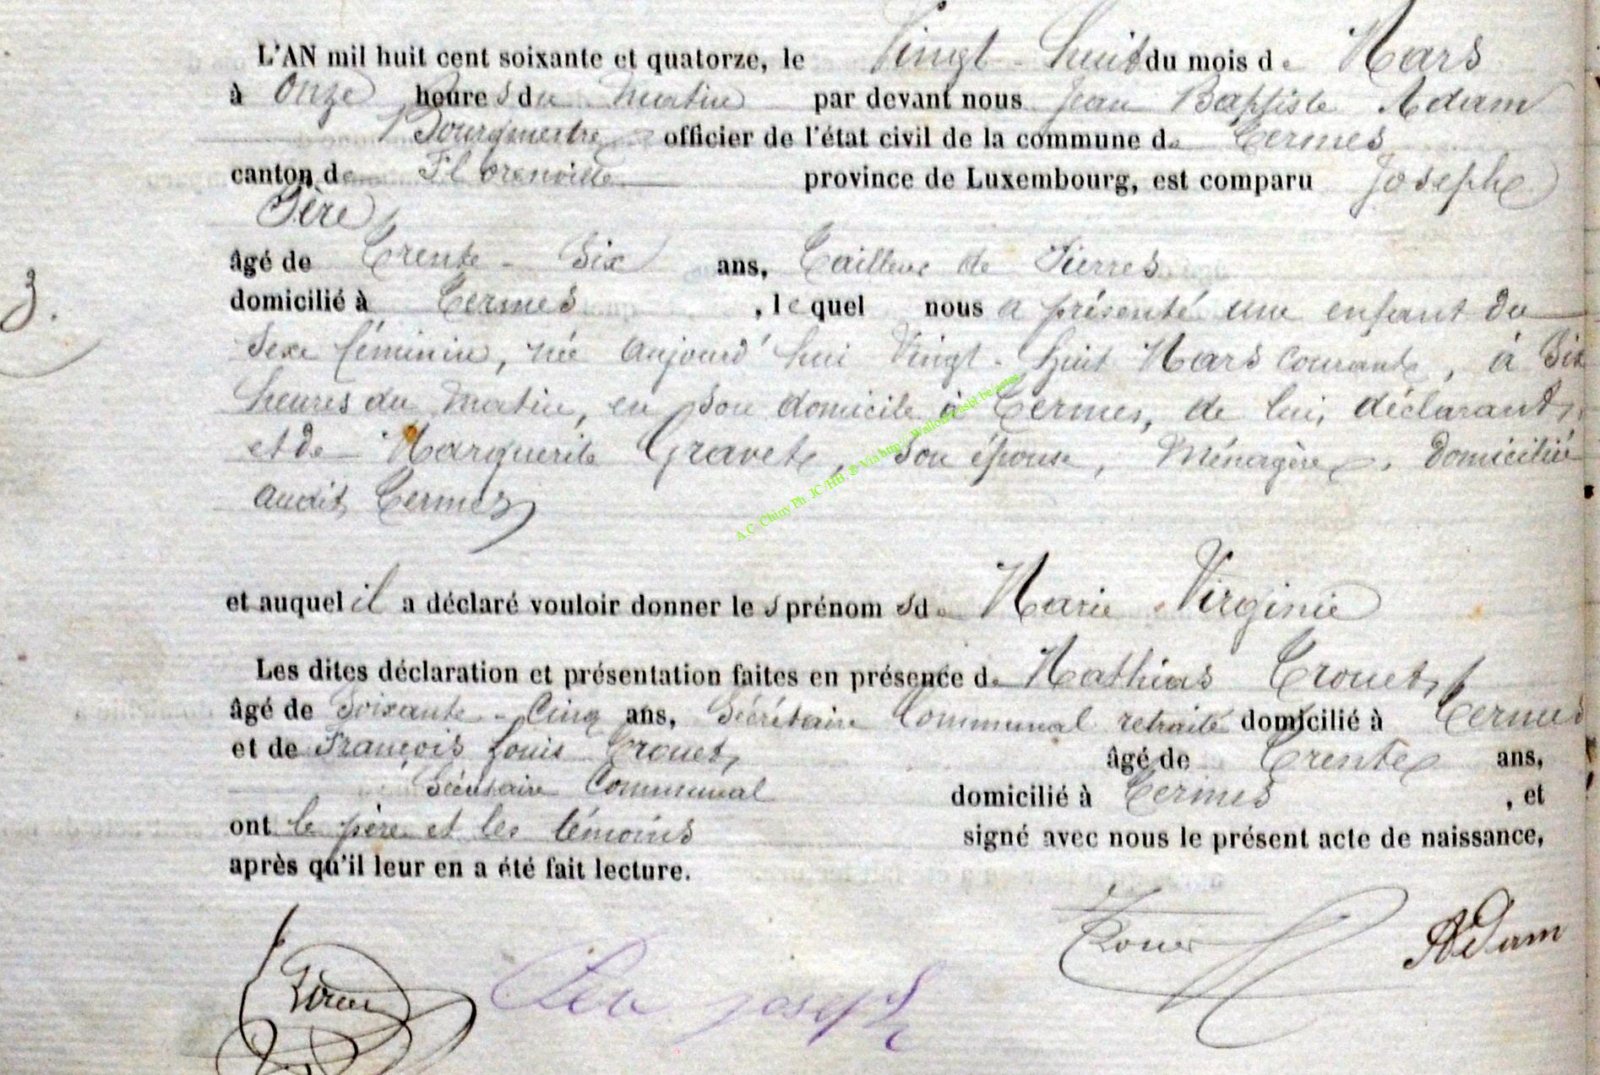 L'AN mil huit cent soixante et quatorze, le Vingt-huit du mois de Mars
à Onze heures du Matin par devant nous Jean Baptiste Adam
Bourgmestre officier de l'état civil de la commune de Termes
canton de Florenville province de Luxembourg, est comparu Joseph
âgé de Trente-Six ans, Tailleur de Pierres
domicilié à Termes, lequel nous a présenté une enfant du
3.
Sexe féminin, née aujourd'hui Vingt-huit Mars Courant, à Six
heures du Matin, en Son domicile à Termes, de lui, déclarant,
et de Marguerite Gravet, Son épouse, Ménagère, domiciliée
audit Termes
et auquel il a déclaré vouloir donner les prénoms de Marie Virginie
Les dites déclaration et présentation faites en présence de Mathias Trouet,
âgé de Soixante-Cinq ans, Secrétaire Communal retraité domicilié à Termes
et de François Louis Trouet, âgé de Trente ans,
Secrétaire Communal domicilié à Termes, et
ont le père et les témoins signé avec nous le présent acte de naissance,
après qu'il leur en a été fait lecture.
Adam
Joseph